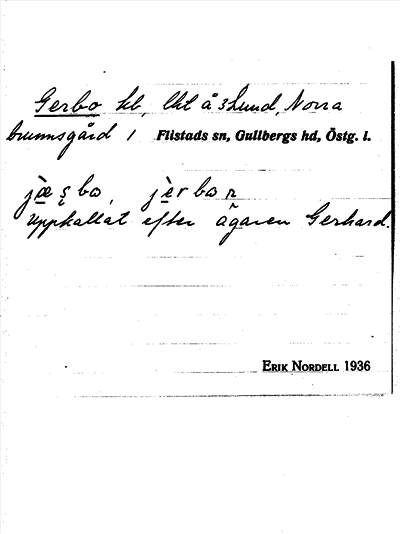 Gerbo hb, lht å 3 Lund, Norra
brunnsgård 1 Flistads sn, Gullbergs hd, Östg. l.
jæ̀ȩbo, jèrbon
Uppkallat efter ägaren Gerhard.
ERIK NORDELL 1936